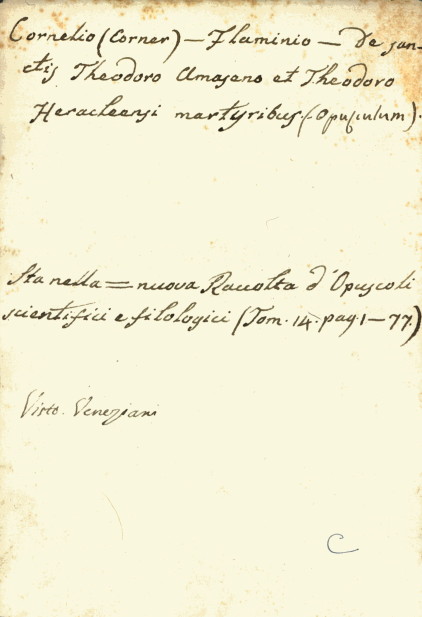 Cornelio (Corner) — Flaminio — De san-
ctis Theodoro Amaseno et Theodoro
Heracleensi martyribus. (Opusculum).
Sta nella = nuova Raccolta d'Opuscoli
scientifici e filologici (Tom. 14. pag. 1 — 77.)
Veneziani
C